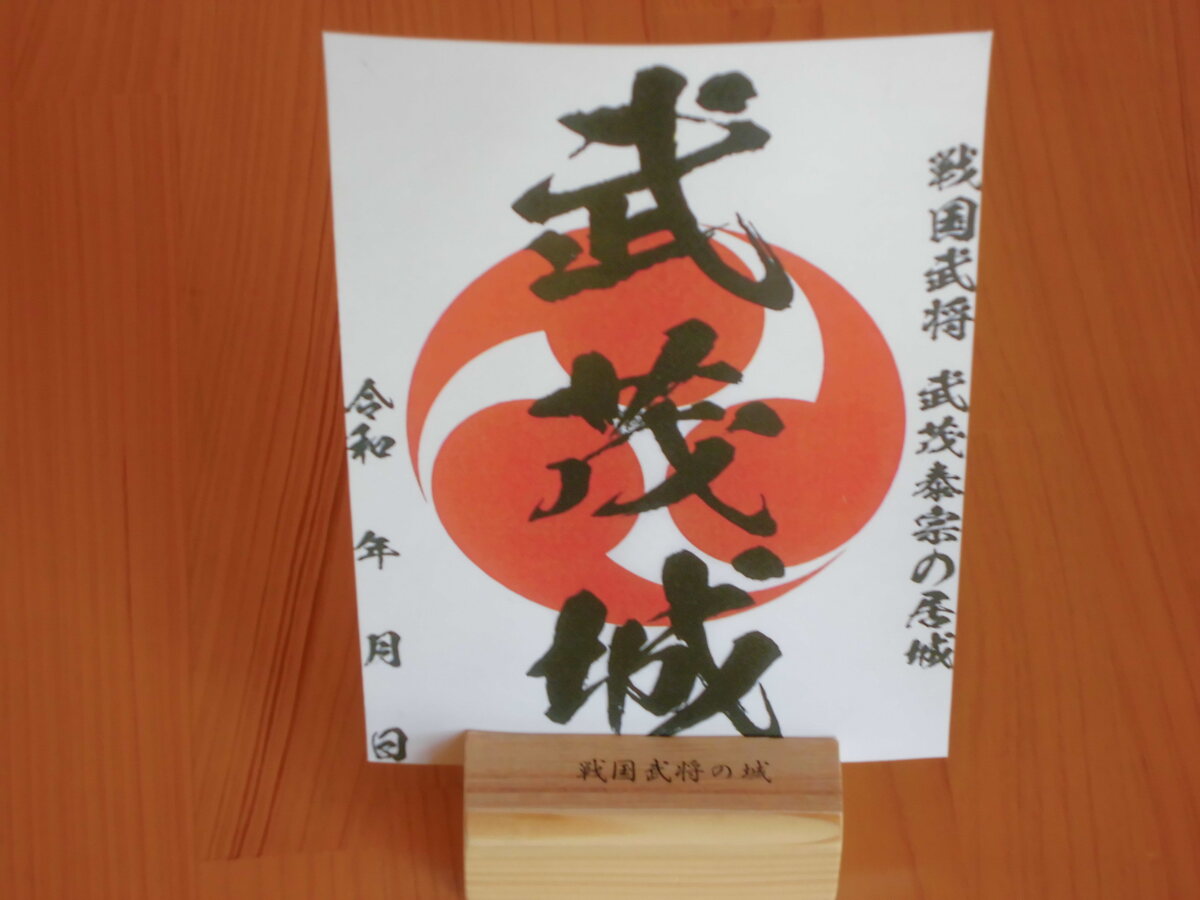 戦国武将 武茂泰宗の居城
武茂城
令和 年 月 日
戦国武将の城